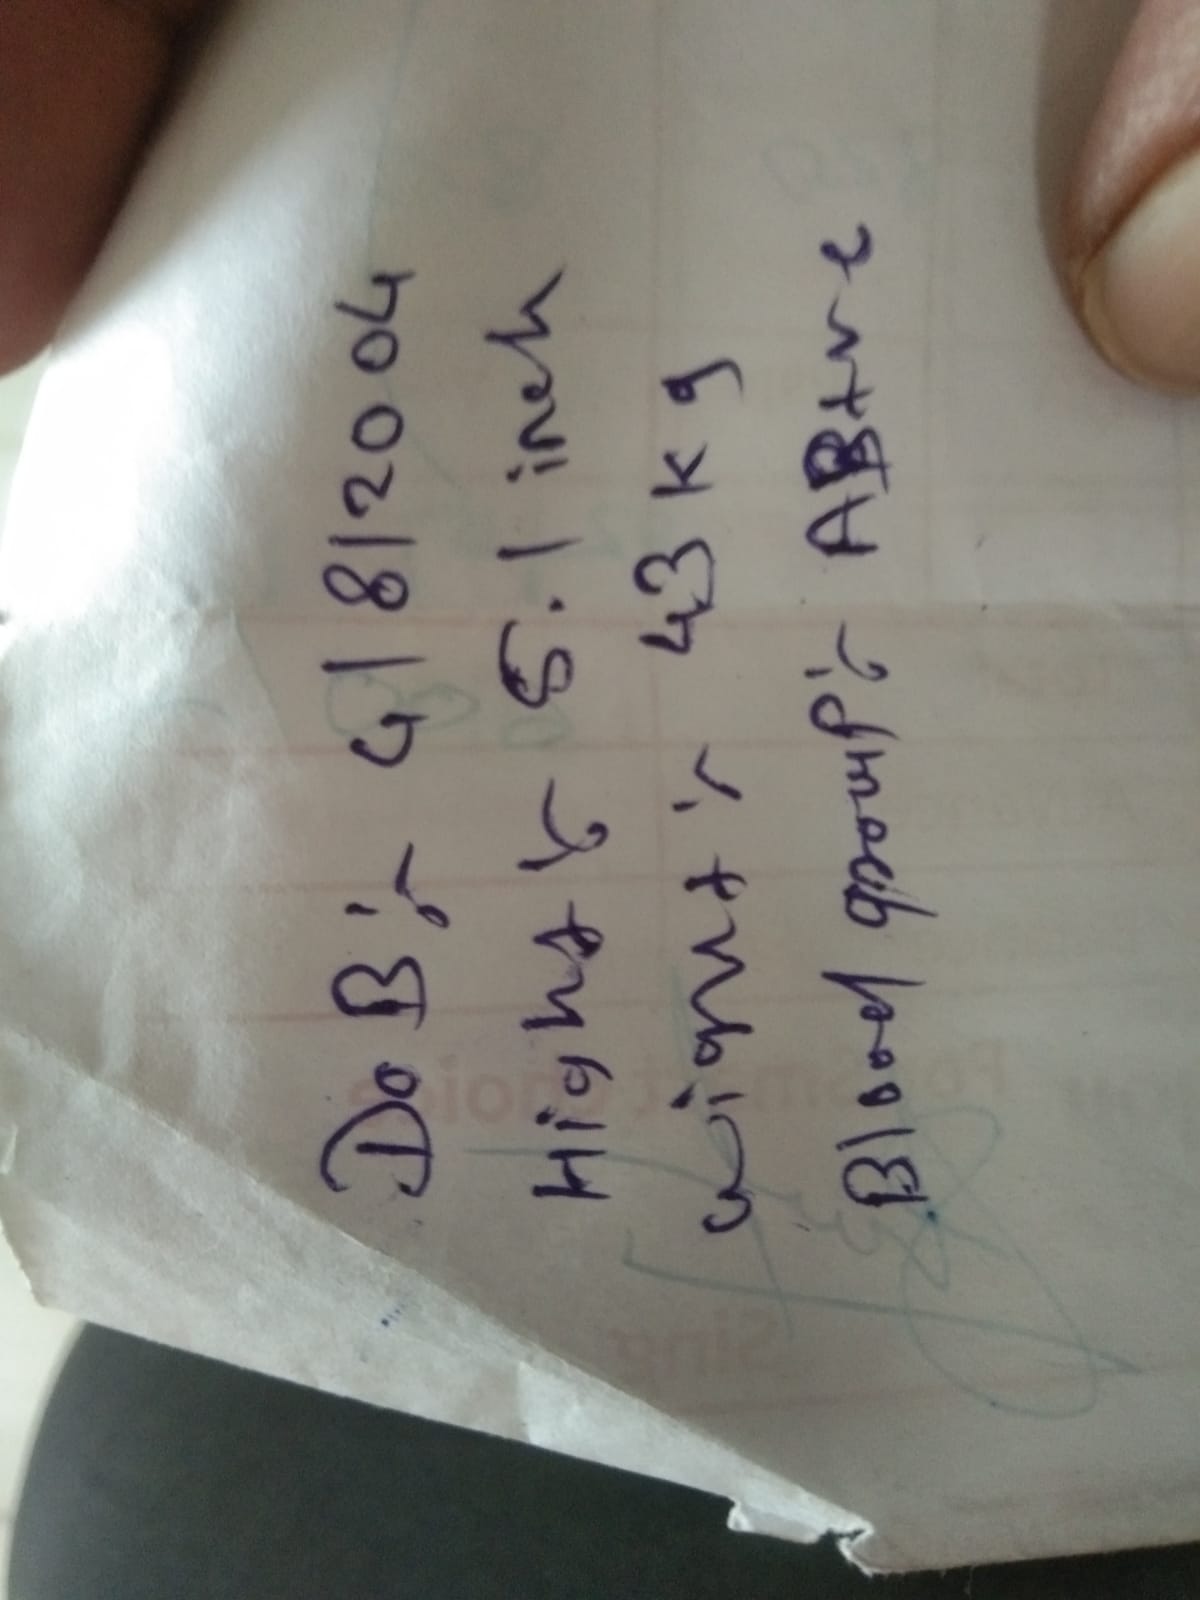 DoB:- 4/8/2004
Hight :- 5.1 inch
wight :- 43 kg
Blood group:- AB+ve